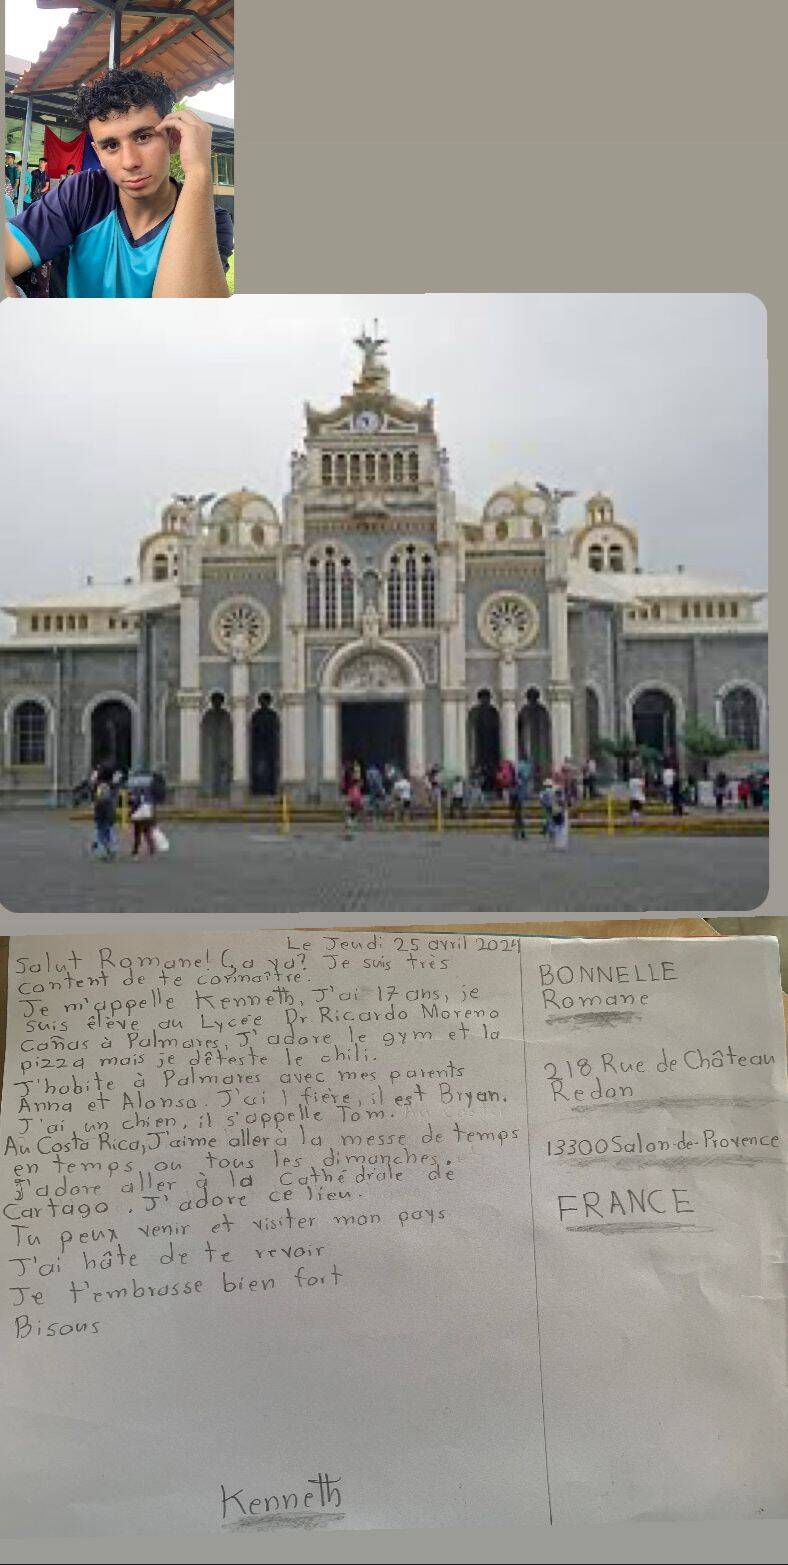 Le Jeudi 25 avril 2024
Salut Romane! Ça va? Je suis très
content de te connaître.
Je m'appelle Kenneth, J'ai 17 ans, je
suis élève au Lycée Dr Ricardo Moreno
Cañas à Palmares, J'adore le gym et la
pizza mais je déteste le chili.
J'habite à Palmares avec mes parents
Anna et Alonso. J'ai 1 frère, il est Bryan.
J'ai un chien, il s'appelle Tom.
Au Costa Rica, J'aime aller à la messe de temps
en temps ou tous les dimanches.
J'adore aller à la Cathédrale de
Cartago. J'adore ce lieu.
Tu peux venir et visiter mon pays
J'ai hâte de te revoir
Je t'embrasse bien fort
Bisous
Kenneth
BONNELLE
Romane
218 Rue de Château
Redon
13300 Salon-de-Provence
FRANCE